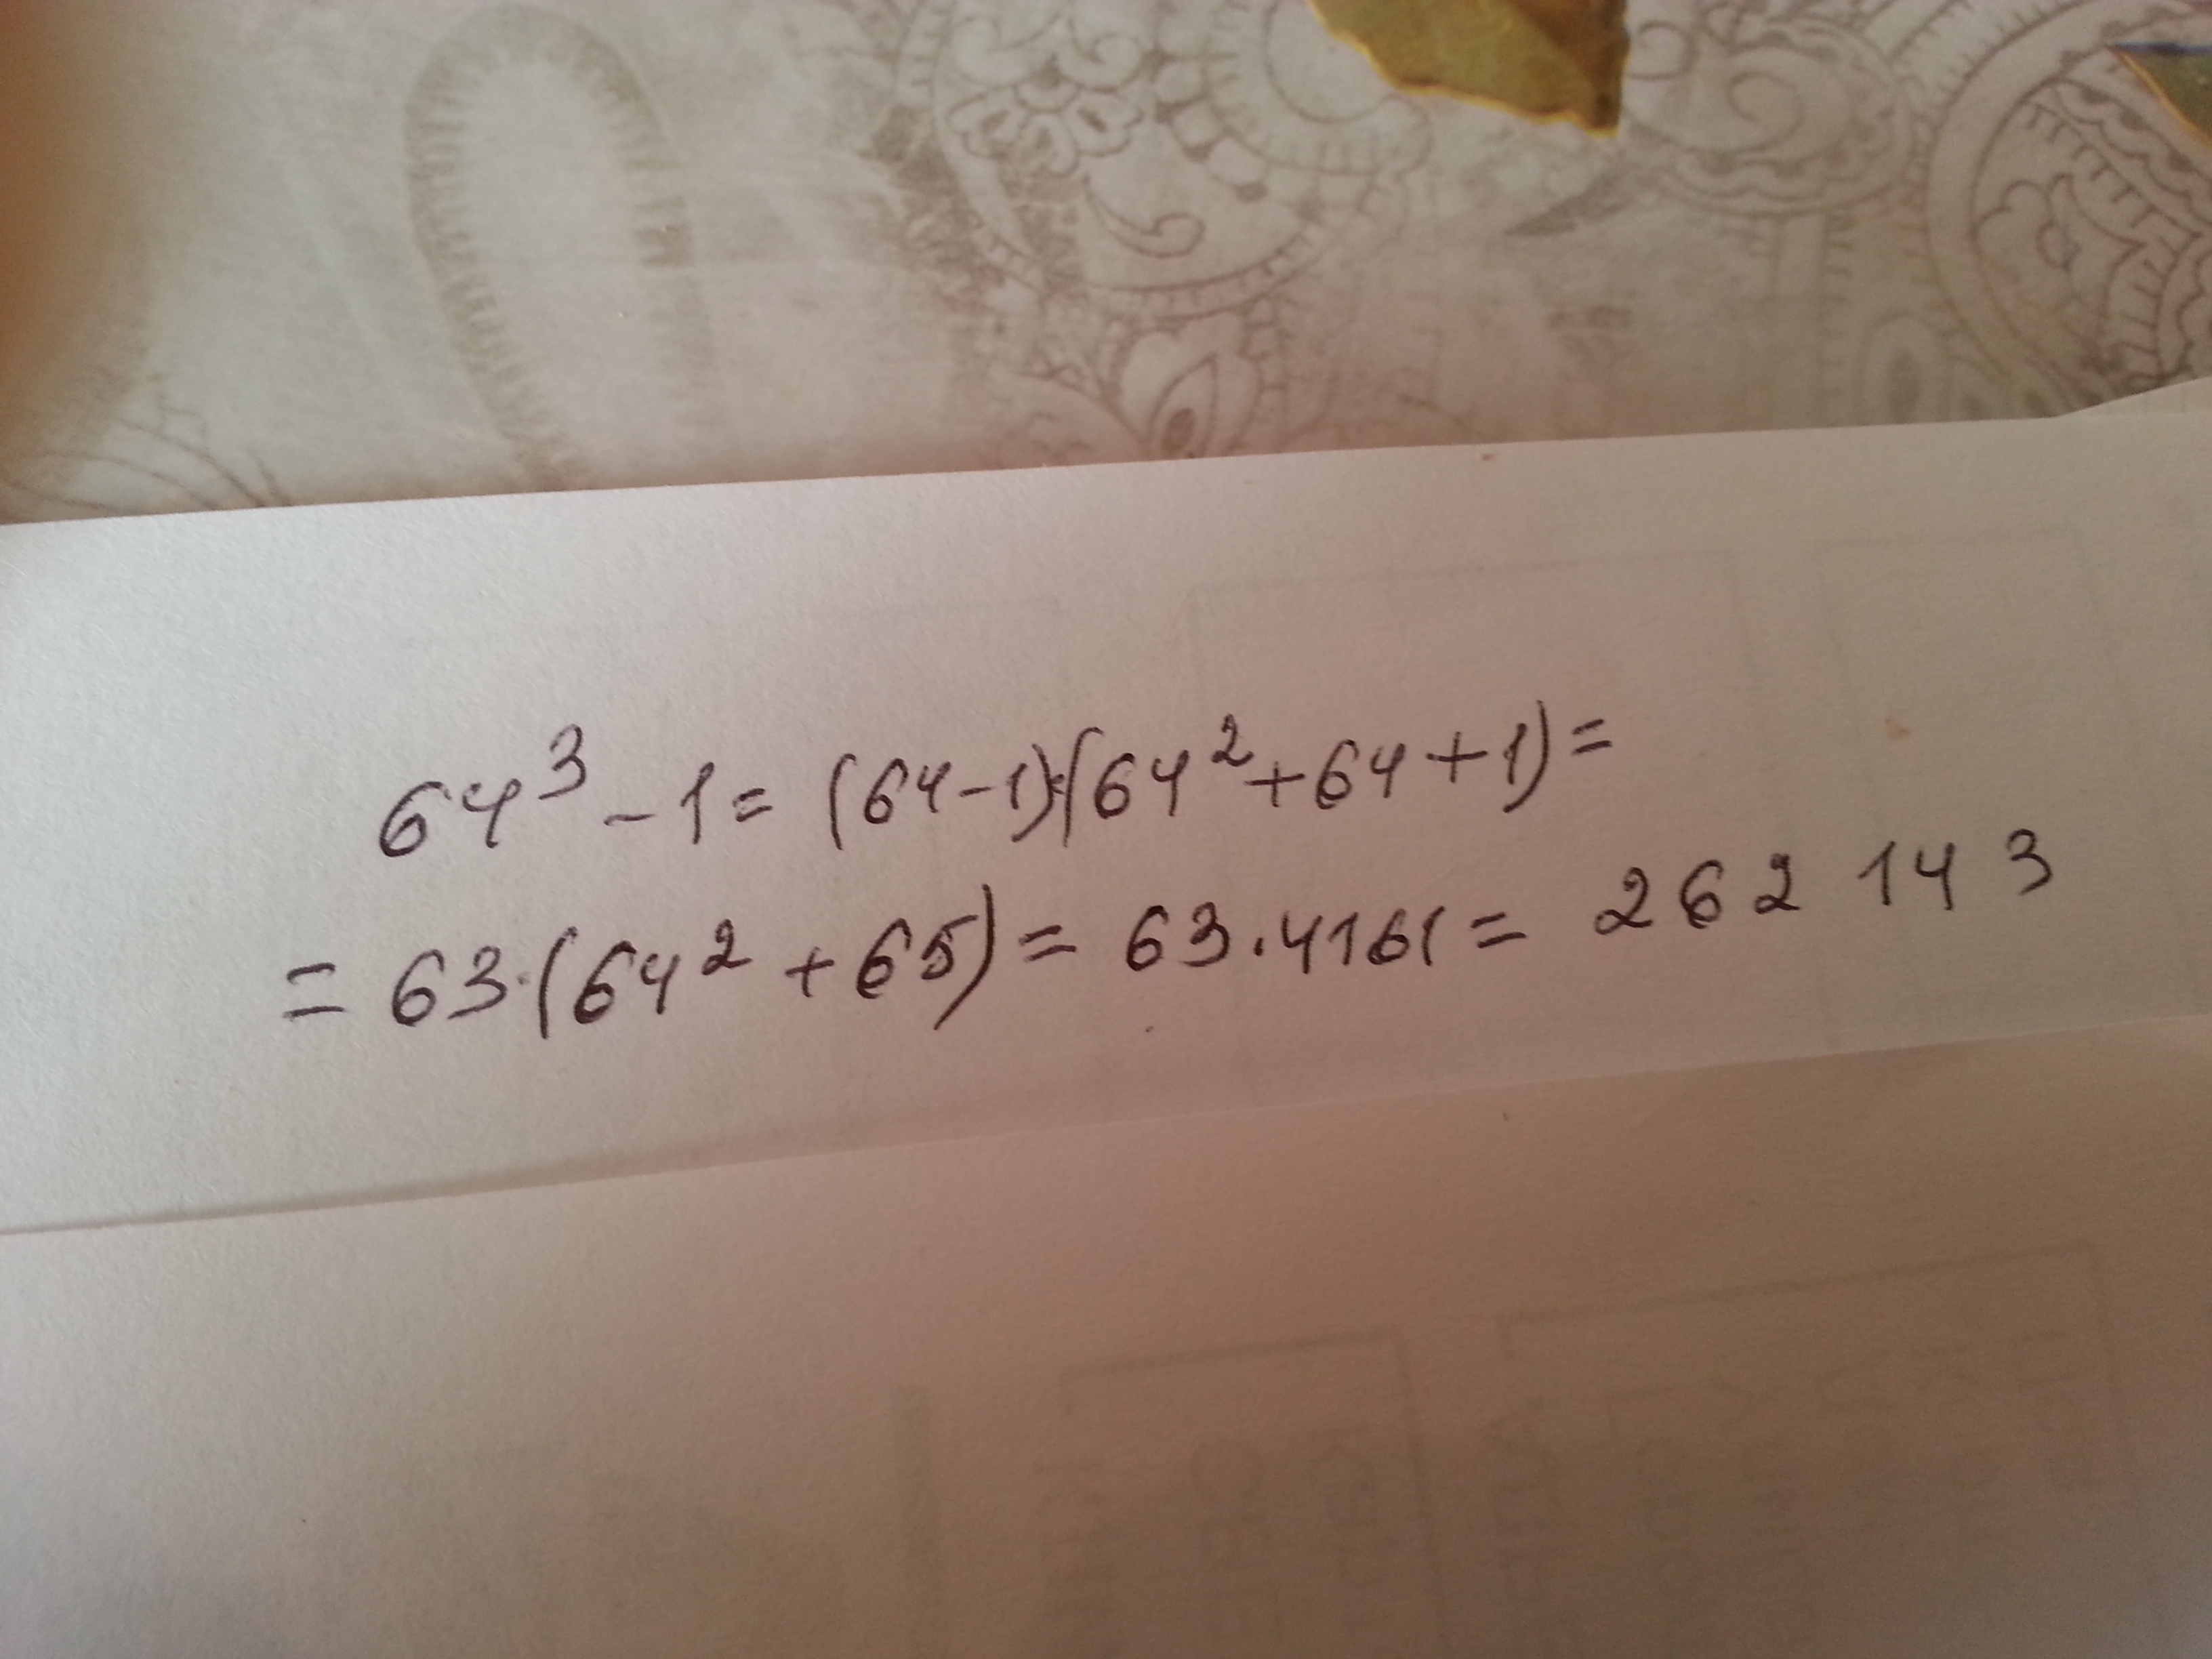 64³ - 1 = (64-1)·(64² + 64 + 1) =
= 63·(64² + 65) = 63·4161 = 262 143